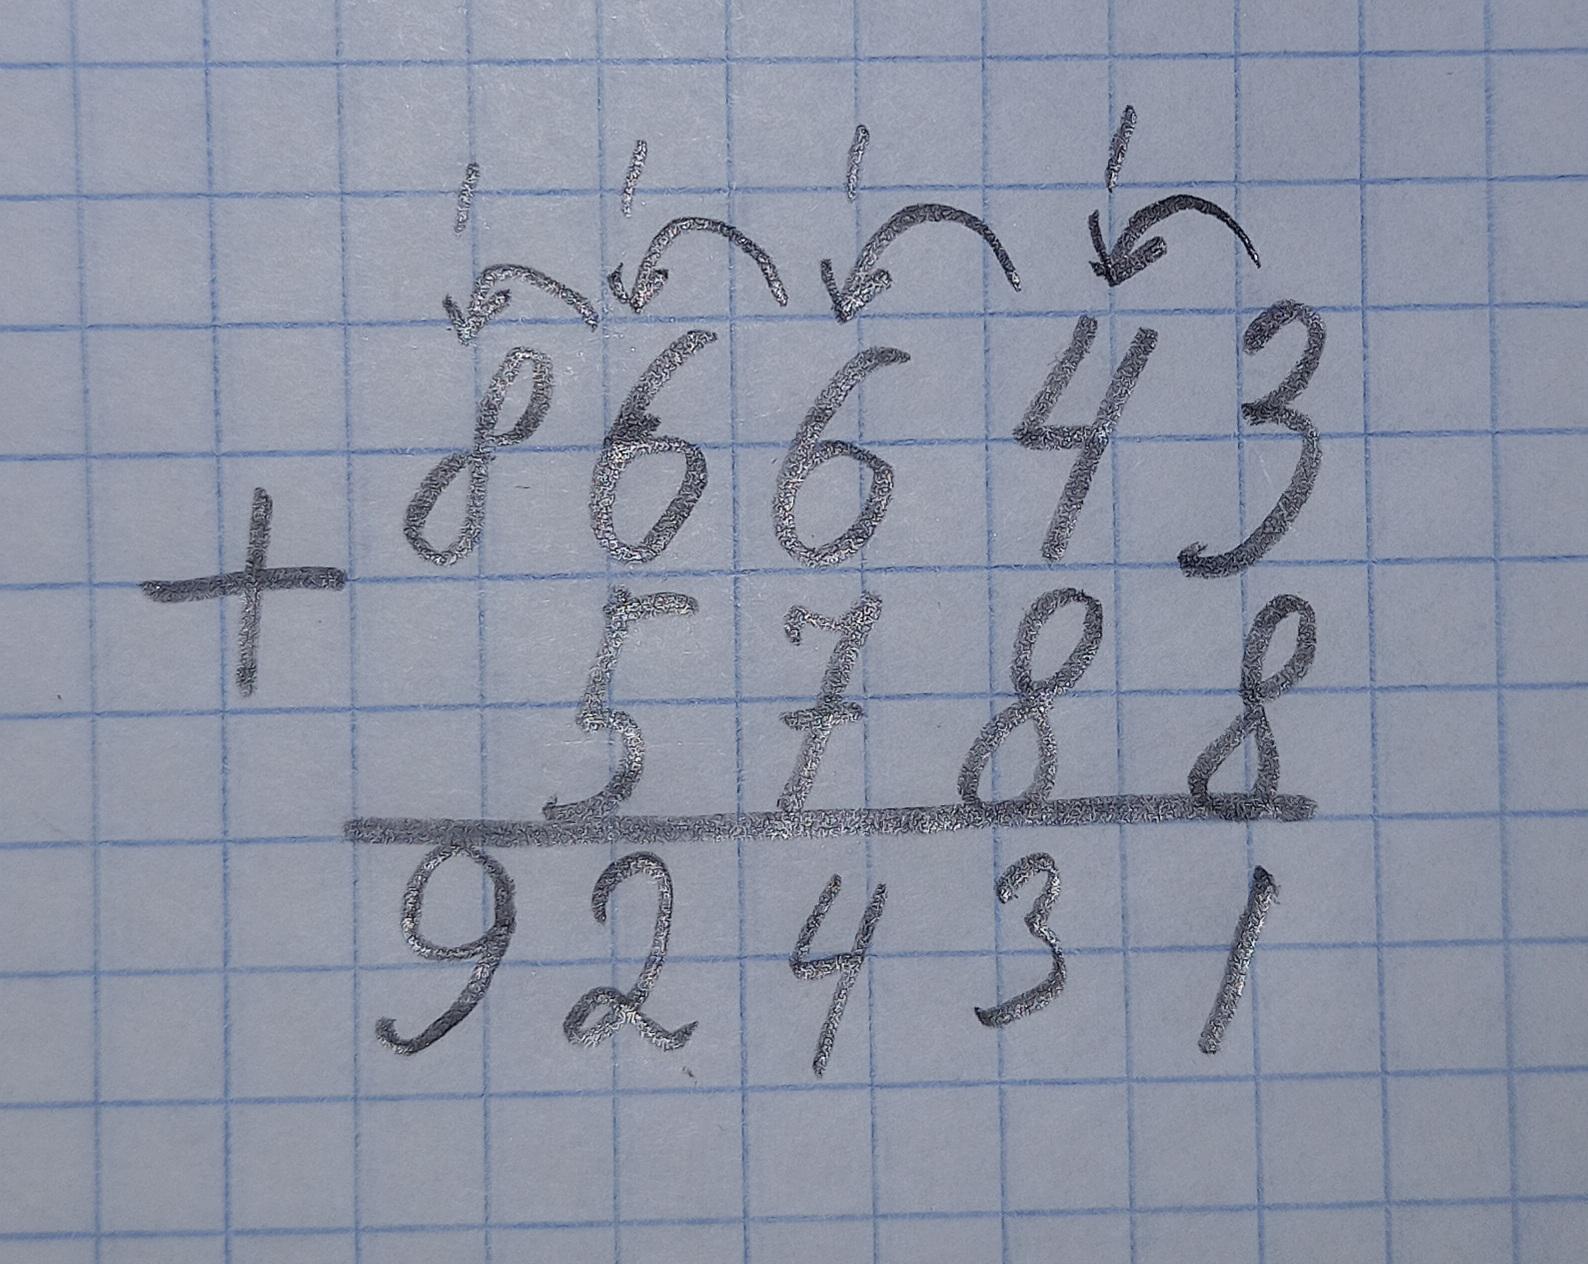 1 1 1 1
86643
+
5788
92431